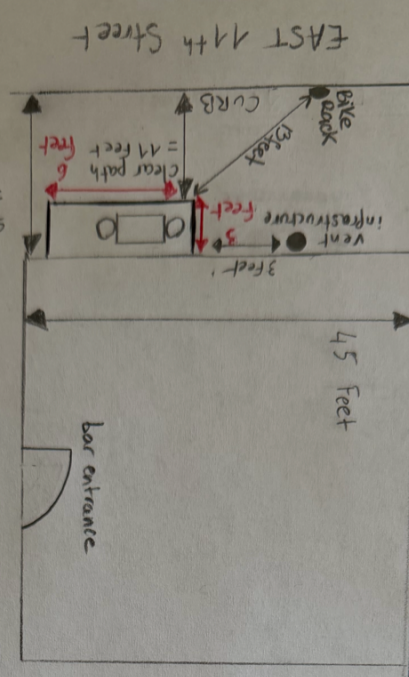 EAST 11th Street
CURB
Bike
Rack
13 feet
clear path
= 11 Feet
6
feet
3
feet
vent
infrastructure
3 feet
45 Feet
bar entrance